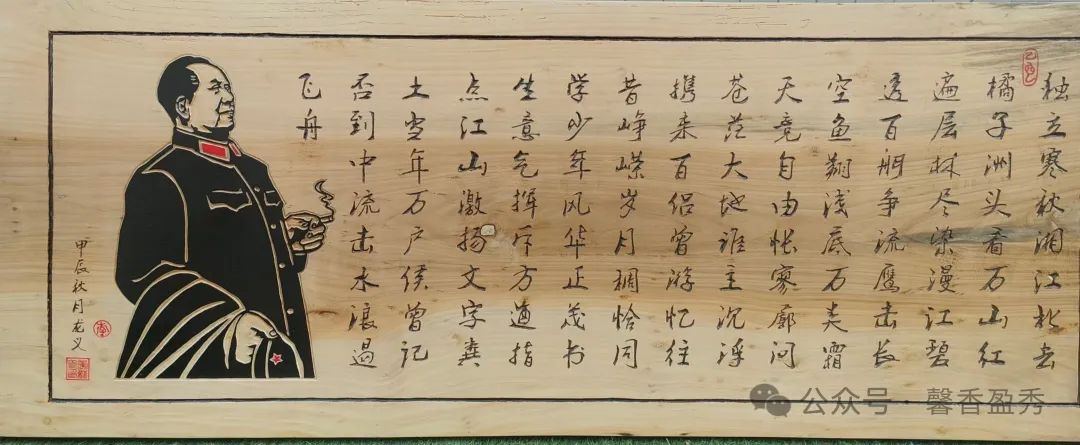 独立寒秋湘江北去
橘子洲头看万山红
遍层林尽染漫江碧
透百舸争流鹰击长
空鱼翔浅底万类霜
天竞自由怅寥廓问
苍茫大地谁主沉浮
携来百侣曾游忆往
昔峥嵘岁月稠恰同
学少年风华正茂书
生意气挥斥方遒指
点江山激扬文字粪
土当年万户侯曾记
否到中流击水浪遏
飞舟
甲辰秋月龙义
公众号 · 馨香盈秀